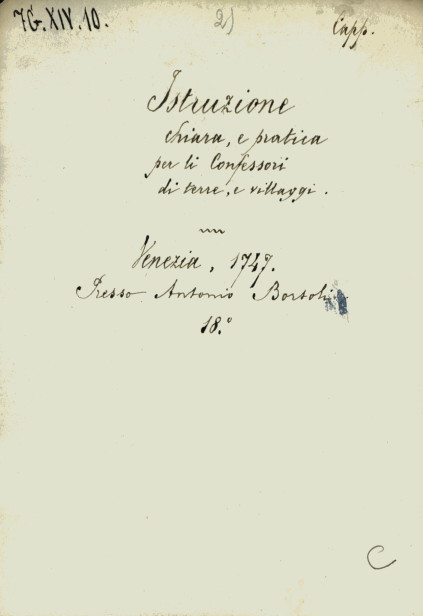 7G.XIV.10.
2)
Capp.
Istruzione
chiara, e pratica
per li Confessori
di terre, e villaggi.
Venezia, 1747.
Presso Antonio Bortoli
18.º
C